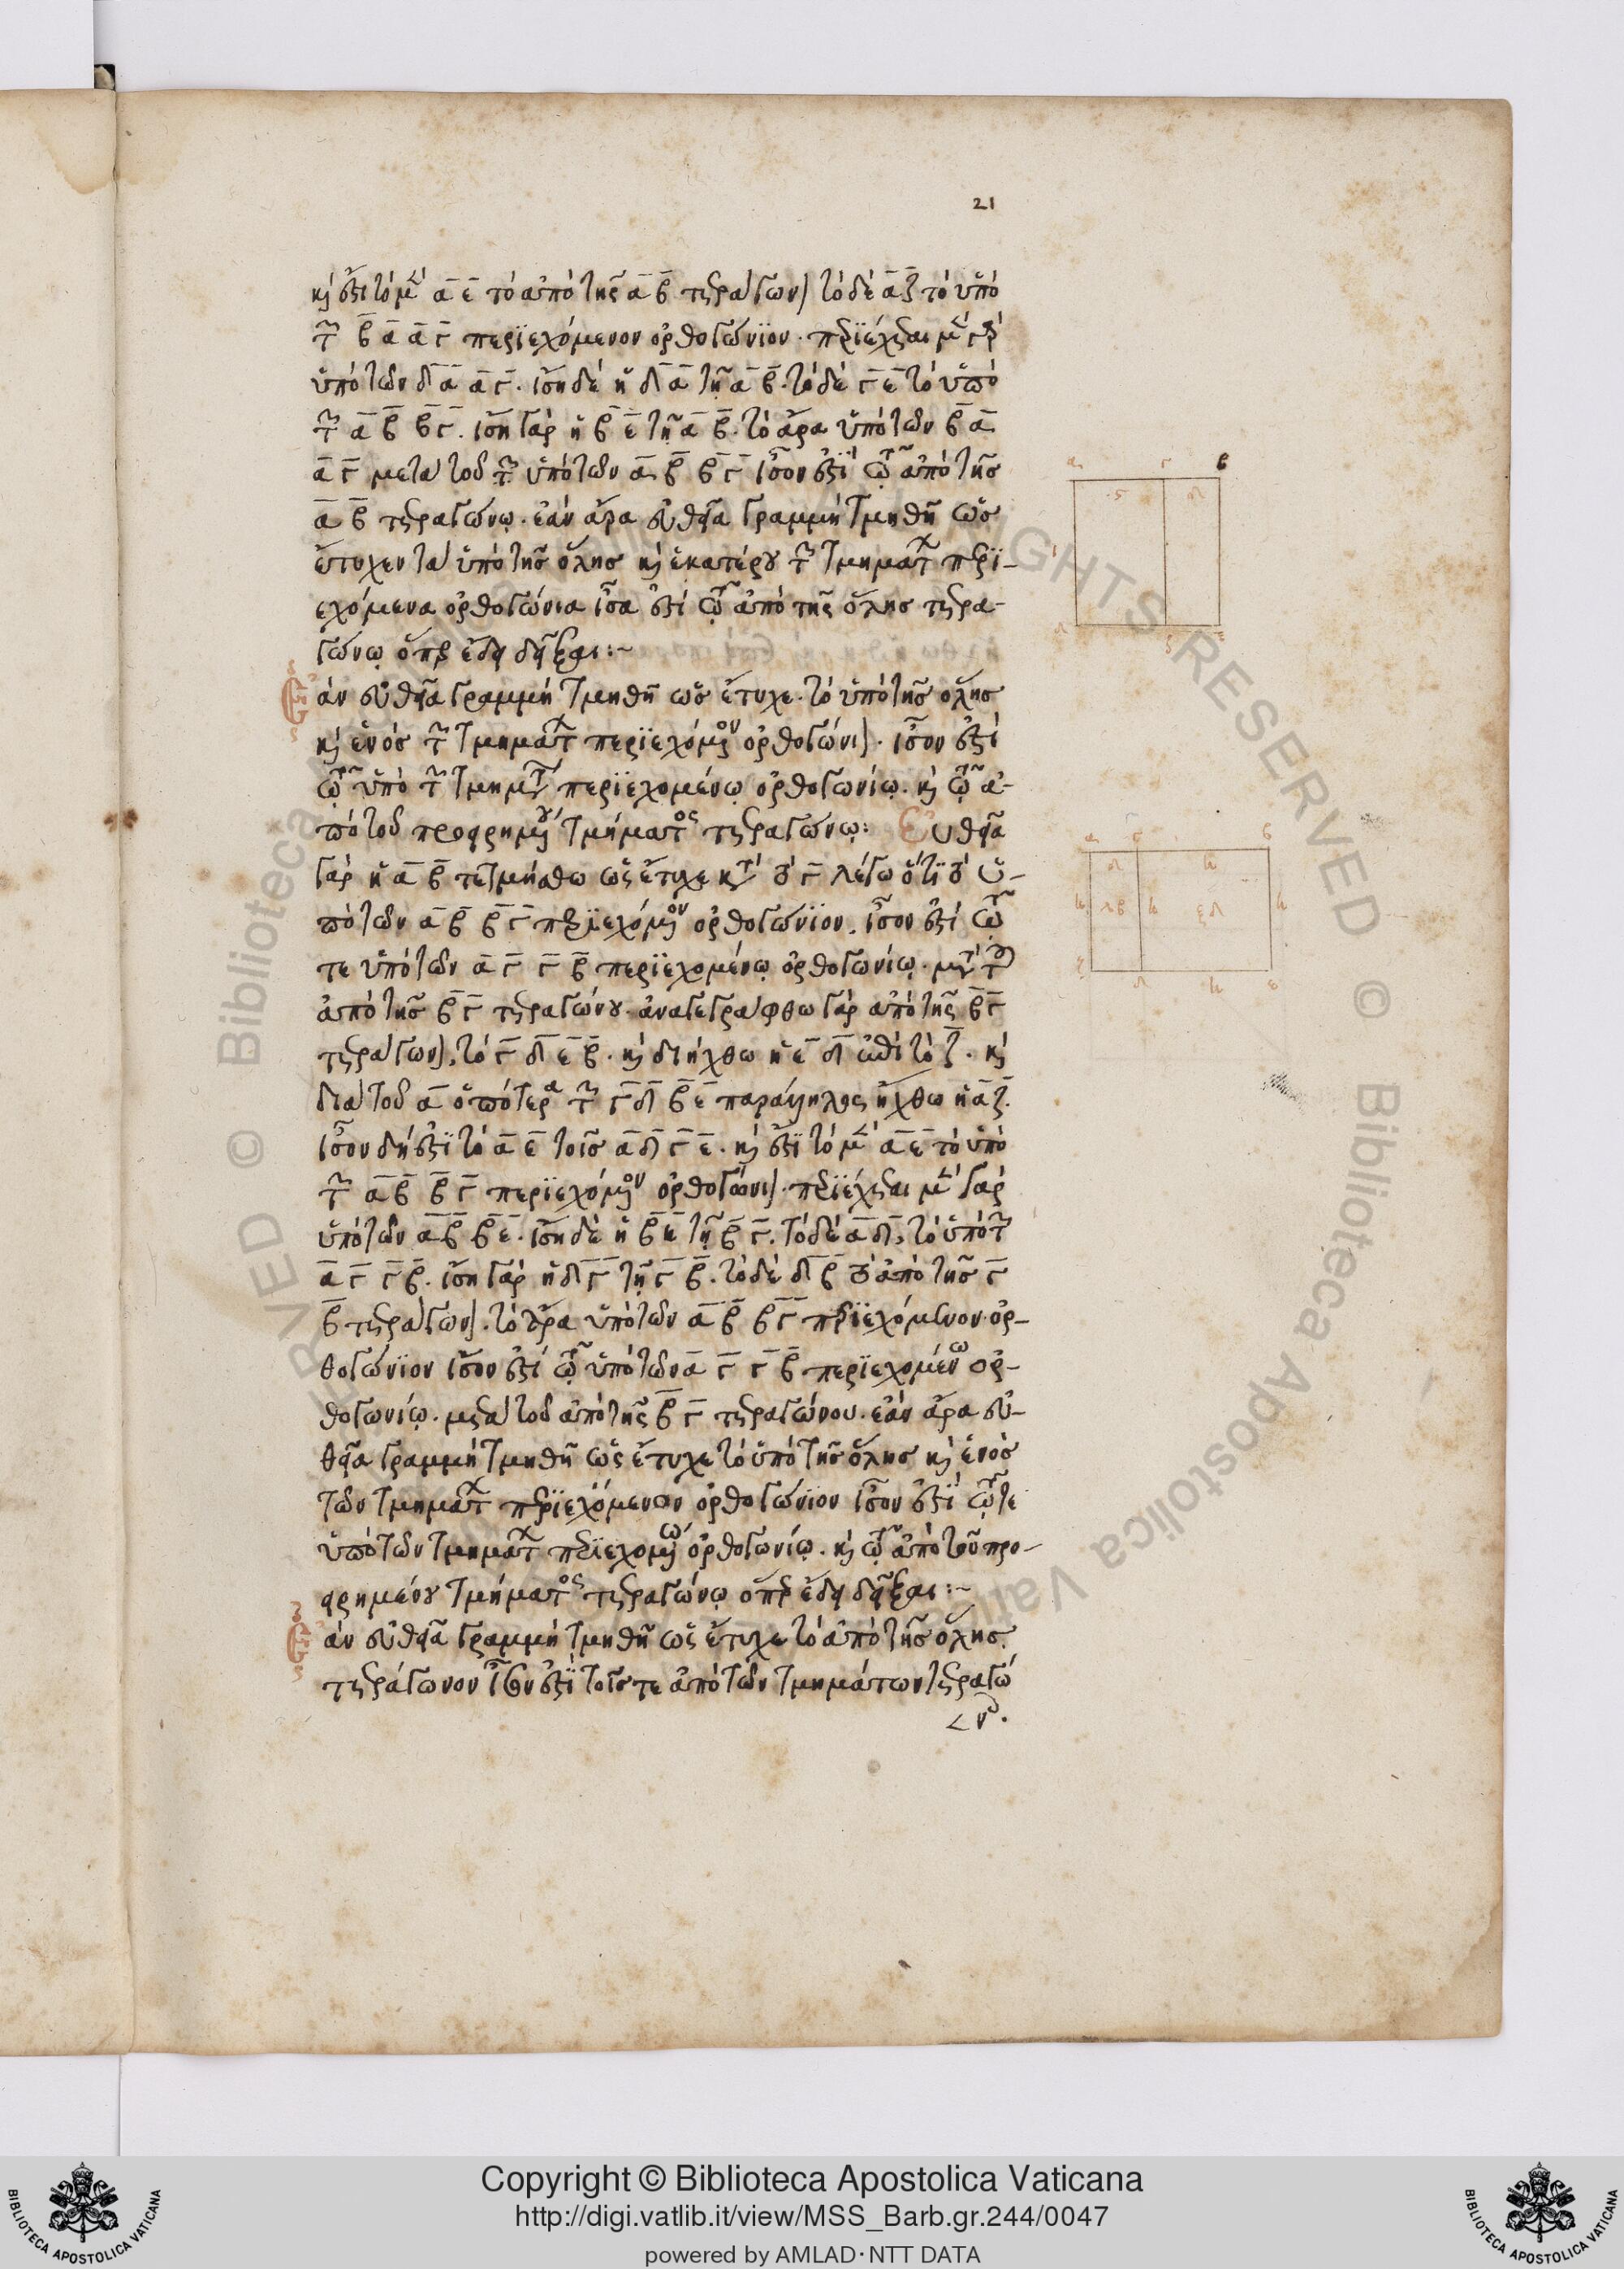 21
κὶ ἐστὶ τὸ μὲν α ε τὸ ἀπὸ τῆς α β τετράγων) τὸ δὲ α ζ τὸ ὑπὸ
τῶν β α α γ περϊεχόμενον ὀρθογώνϊον · περϊέχεται μὲν γὰρ
ὑπὸ τῶν δ α α γ · ἴση δὲ ἡ δ α τῆ α β · τὸ δὲ γ ε τὸ ὑπὸ
τῶν α β β γ · ἴση γὰρ ἡ β ε τῆ α β · τὸ ἄρα ὑπὸ τῶν β α
α γ μετὰ τοῦ τῶν ὑπὸ τῶν α β β γ ἴσον ἐστὶ τῷ ἀπὸ τῆς
α β τετραγώνῳ · ἐὰν ἄρα εὐθεῖα γραμμὴ τμηθῆ ὡς
ἔτυχεν τὰ ὑπὸ τῆς ὅλης κὶ ἑκατέρου τῶν τμημάτ περϊ-
εχόμενα ὀρθογώνια ἴσα ἐστὶ τῷ ἀπὸ τῆς ὅλης τετρα-
γώνῳ ὅπερ ἔδει δεῖξαι :~
Ἐὰν εὐθεῖα γραμμὴ τμηθῆ ὡς ἔτυχε · τὸ ὑπὸ τῆς ὅλης
κὶ ἑνὸς τῶν τμημάτ περϊεχόμον ὀρθογώνι) · ἴσον ἐστὶ
τῷ ὑπὸ τῶν τμημτ περϊεχομένῳ ὀρθογωνίῳ · κὶ τῷ ἀ-
πὸ τοῦ προειρημου τμήματος τετραγώνῳ : Εὐθεῖα
γάρ ἡ α β τετμήσθω ὡς ἔτυχε κτ τὸ γ λέγω ὅτϊ τὸ ὑ-
πὸ τῶν α β β γ περϊεχόμον ὀρθογώνϊον · ἴσον ἐστὶ τῷ
τε ὑπὸ τῶν α γ γ β περϊεχομένῳ ὀρθογωνίῳ · μετ τοῦ
ἀπὸ τῆς β γ τετραγώνου · ἀναγεγράφθω γὰρ ἀπὸ τῆς β γ
τετράγων), τὸ γ δ ε β · κὶ διήχθω ἡ ε δ ἐπὶ τὸ ζ · κὶ
διὰ τοῦ α ὁποτέρα τῶν γ δ β ε παράλληλος ἤχθω ἡ α ζ ·
ἴσον δή ἐστϊ τὸ α ε τοῖς α δ γ ε · κὶ ἐστϊ τὸ μὲν α ε τὸ ὑπὸ
τῶν α β β γ περϊεχόμον ὀρθογώνι) · περϊέχεται μὲν γὰρ
ὑπὸ τῶν α β β ε · ἴση δὲ ἡ β ε τῆ β γ · τὸ δὲ α δ, τὸ ὑπὸ τῶν
α γ γ β · ἴση γὰρ ἡ δ γ τῆ γ β · τὸ δὲ δ β τὸ ἀπὸ τῆς γ
β τετράγων) · τὸ ἄρα ὑπὸ τῶν α β β γ περϊεχόμενον · ὀρ-
θογώνϊον ἴσον ἐστὶ τῷ ὑπὸ τῶν α γ γ β περϊεχομένω ὀρ-
θογωνίῳ · μετὰ τοῦ ἀπὸ τῆς β γ τετραγώνου · ἐὰν ἄρα εὐ-
θεῖα γραμμὴ τμηθῆ ὡς ἔτυχε τὸ ὑπὸ τῆς ὅλης κὶ ἑνὸς
τῶν τμημάτ περϊεχόμενον ὀρθογώνϊον ἴσον ἐστϊ τῷ τε
ὑπὸ τῶν τμημάτ περϊεχομω ὀρθογωνίῳ · κὶ τῷ ἀπὸ τοῦ προ-
ειρημένου τμήματος τετραγώνῳ ὅπερ ἔδει δεῖξαι :~
Ἐὰν εὐθεῖα γραμμὴ τμηθῆ ὡς ἔτυχε τὸ ἀπὸ τῆς ὅλης
τετράγωνον ἴσον ἐστϊ τοῖς τε ἀπὸ τῶν τμημάτων τετραγώ
< ν .
α γ β
α γ β
Copyright © Biblioteca Apostolica Vaticana
http://digi.vatlib.it/view/MSS_Barb.gr.244/0047
powered by AMLAD·NTT DATA
BIBLIOTECA APOSTOLICA VATICANA
BIBLIOTECA APOSTOLICA VATICANA